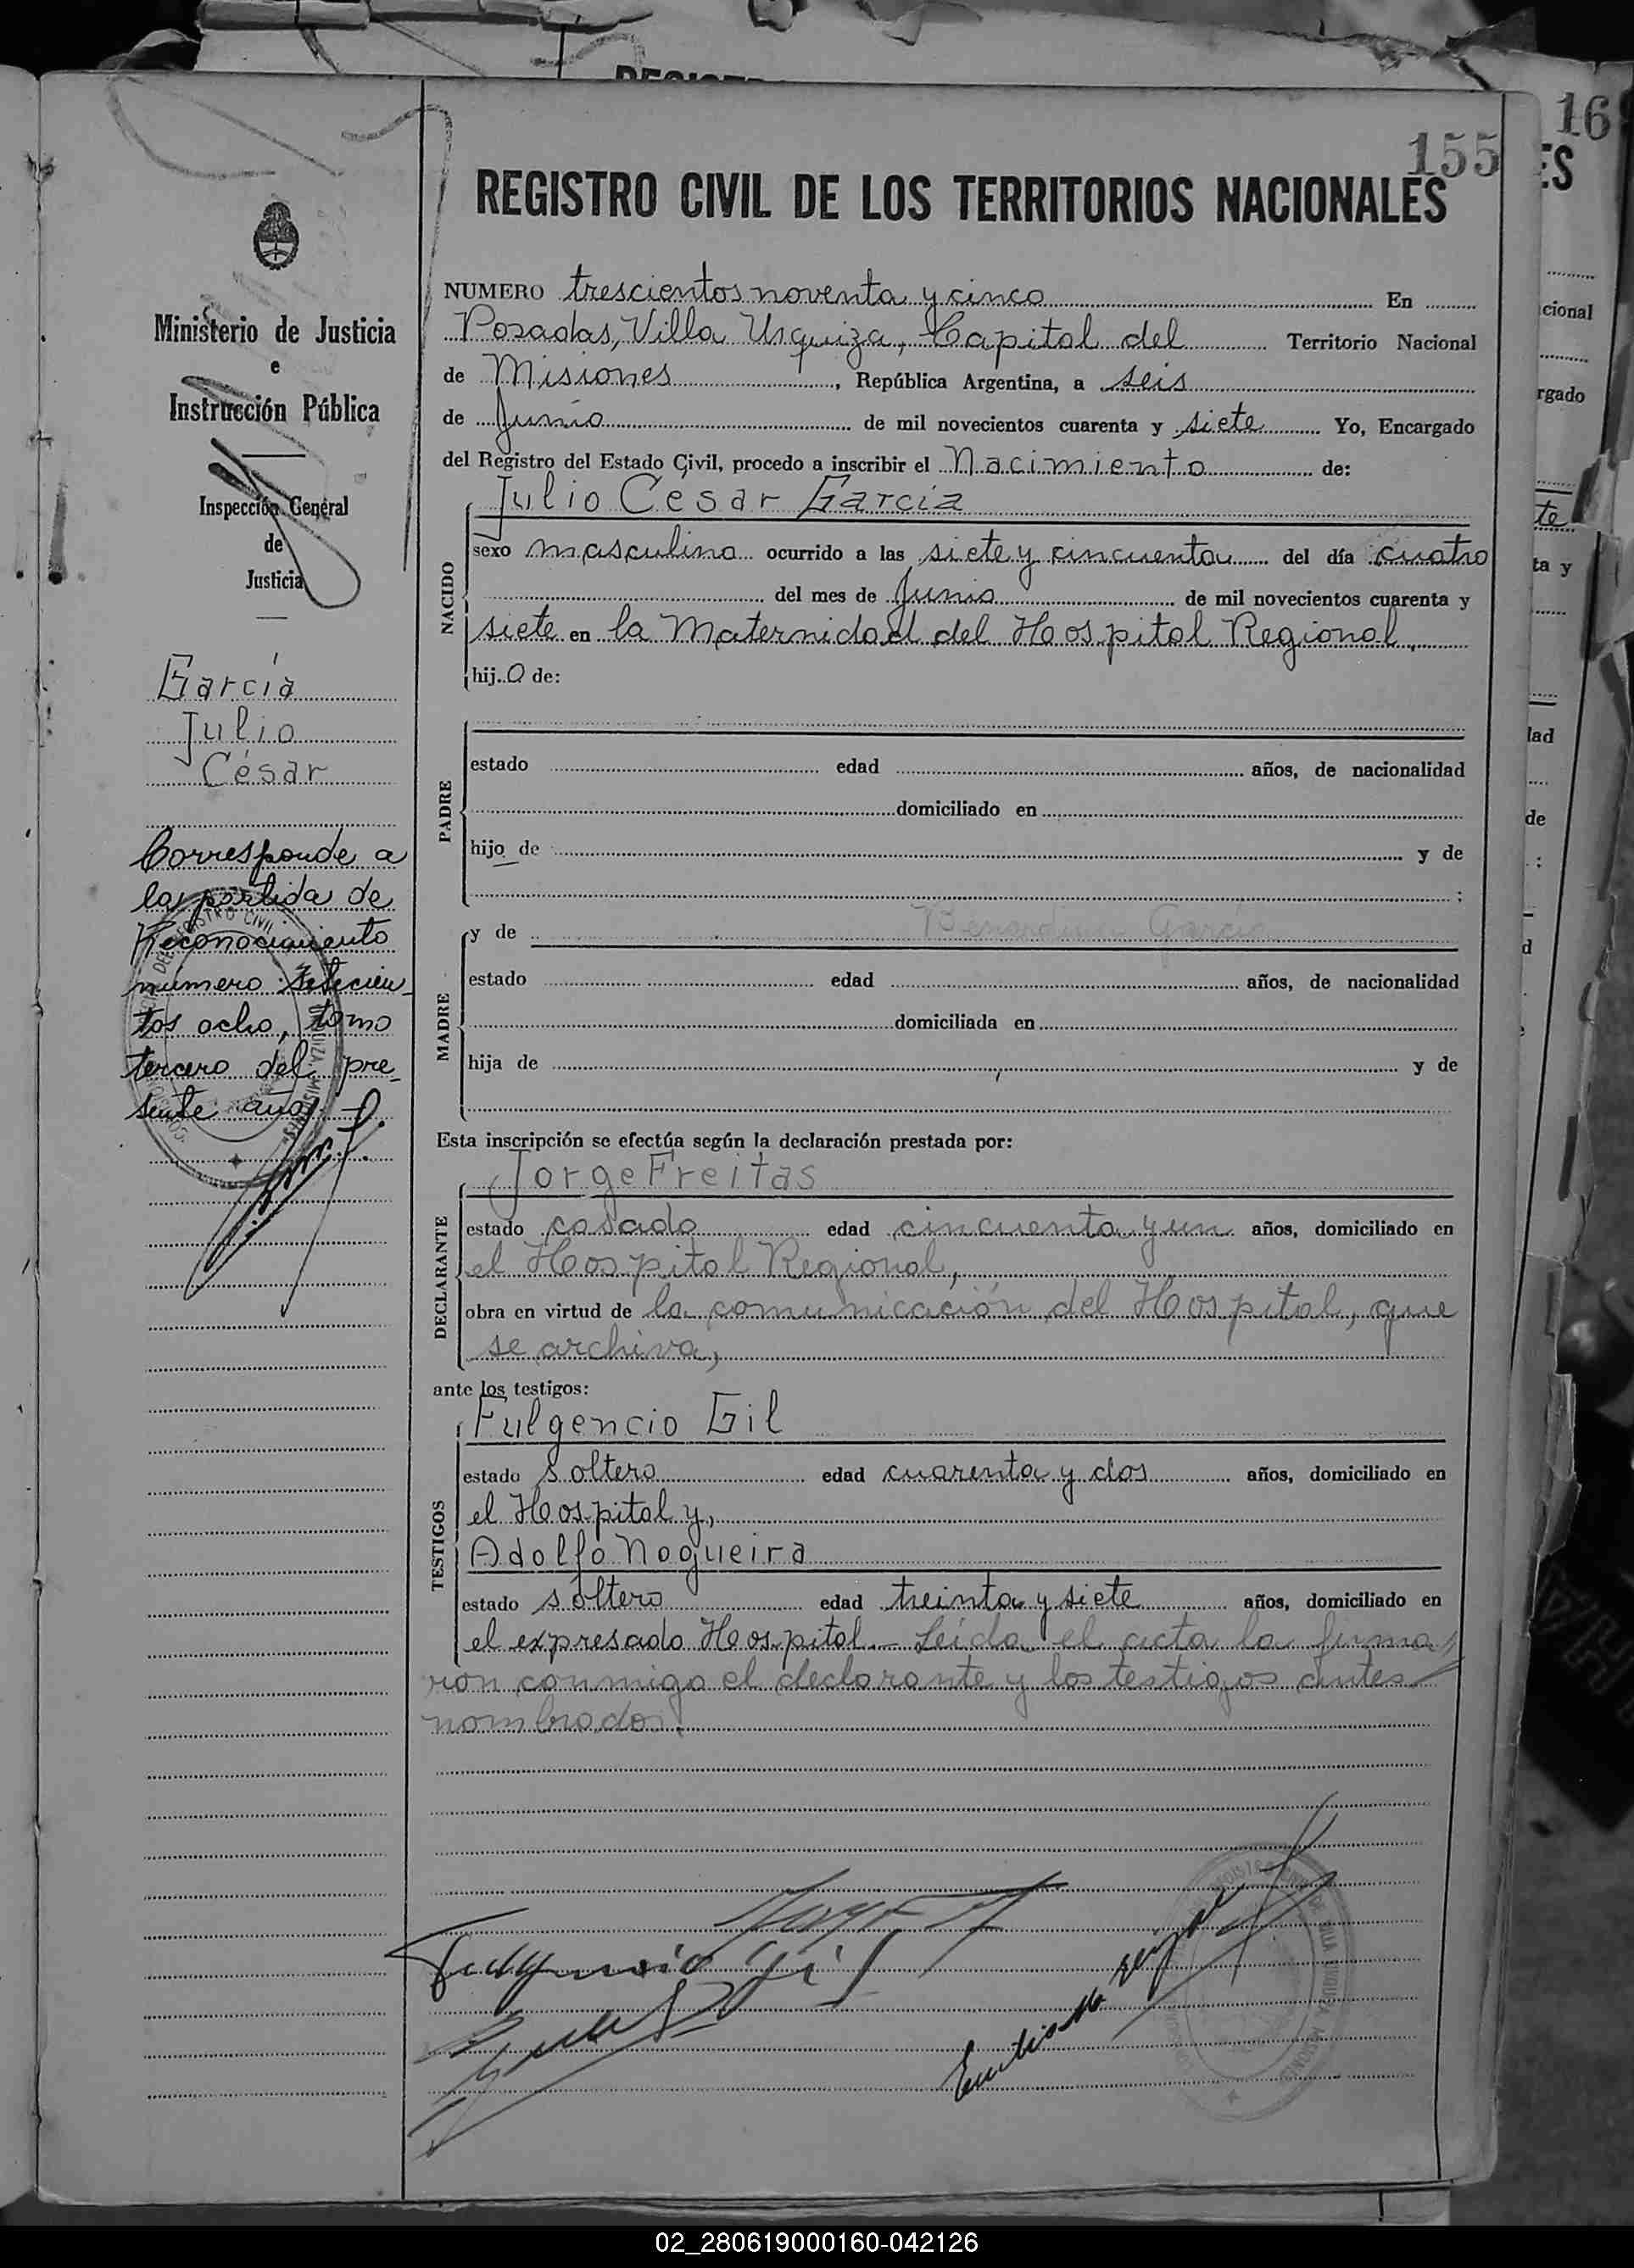 16
155
REGISTRO CIVIL DE LOS TERRITORIOS NACIONALES
ES
Ministerio de Justicia
e
Instrucción Pública
Inspección General
de
Justicia
García
Julio
César
Corresponde a
la partida de
Reconocimiento
número Setecien-
tos ocho, tomo
tercero del pre-
sente año
NUMERO trescientos noventa y cinco En
Posadas, Villa Urquiza, Capital del Territorio Nacional
de Misiones, República Argentina, a seis
de Junio de mil novecientos cuarenta y siete Yo, Encargado
del Registro del Estado Civil, procedo a inscribir el Nacimiento de:
NACIDO
Julio César García
sexo masculino ocurrido a las siete y cincuenta del día cuatro
del mes de Junio de mil novecientos cuarenta y
siete en la Maternidad del Hospital Regional,
hijo de:
PADRE
estado edad años, de nacionalidad
domiciliado en
hijo de y de
;
MADRE
y de García
estado edad años, de nacionalidad
domiciliada en
hija de y de
Esta inscripción se efectúa según la declaración prestada por:
DECLARANTE
Jorge Freitas
estado casado edad cincuenta y un años, domiciliado en
el Hospital Regional,
obra en virtud de la comunicación del Hospital, que
se archiva,
ante los testigos:
TESTIGOS
Fulgencio Gil
estado soltero edad cuarenta y dos años, domiciliado en
el Hospital y,
Adolfo Nogueira
estado soltero edad treinta y siete años, domiciliado en
el expresado Hospital.- Leída el acta la firma
ron conmigo el declarante y los testigos antes
nombrados.
Fulgencio Gil
cional
rgado
te
ta y
lad
de
:
d
02_280619000160-042126